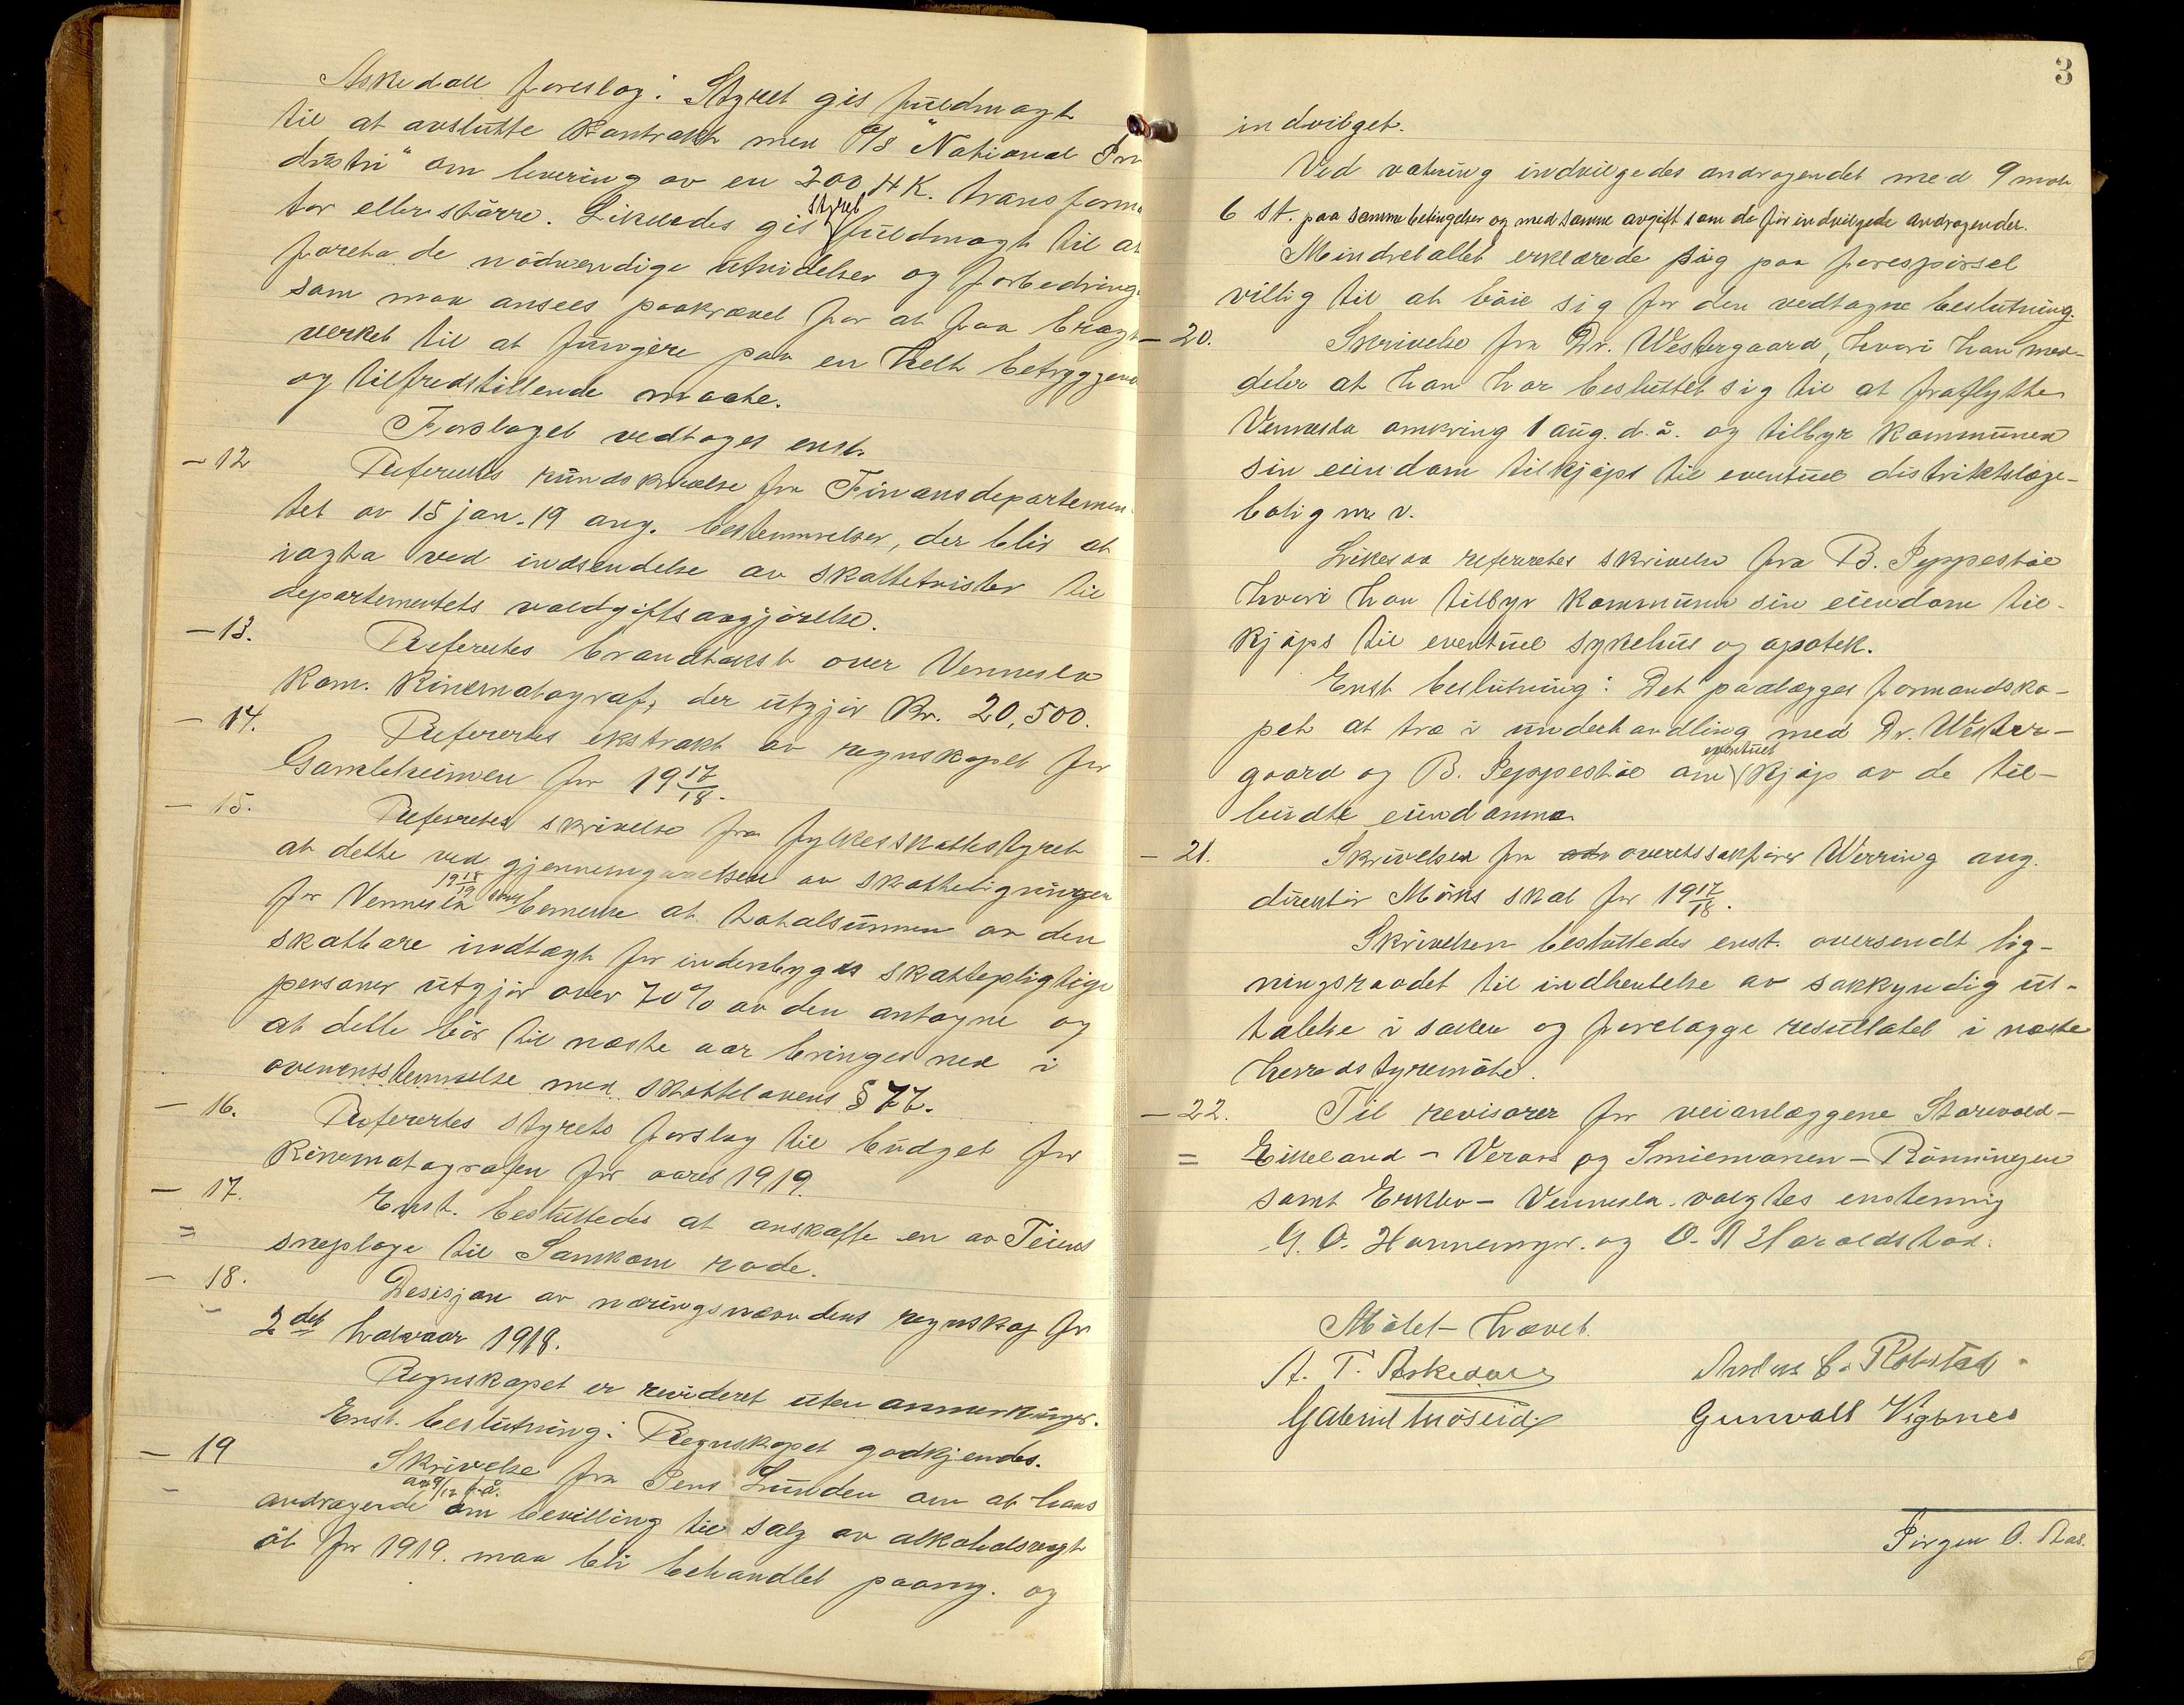 Askedall foreslog: Styret gis fuldmagt
til at avslutte kontrakt med A/S "National In-
dustri" om levering av en 200 H.K. transforma
tor eller større. Likeledes gis styret fuldmagt til at
foreta de nödvendige utvidelser og forbedringe
som maa ansees paakrævet for at faa bragt
verket til at fungere paa en helt betryggende
og tilfredstillende maate.
Forslaget vedtoges enst.
- 12 Refertes rundskrivelse fra Finansdepartemen-
tet av 15 jan. 19 ang. bestemmelser, der blir at
iagta ved indsendelse av skattetvister til
departementets voldgiftsavgjörelse.
- 13. Refertes brandtakst over Vennesla
kom. Kinematograf, der utgjör Kr. 20,500.
- 14. Refertes ekstrakt av regnskapet for
Gamleheimen for 1917/18.
- 15. Refertes skrivelse fra fylkesskattestyret
at dette ved gjennemgaaelsen av skatteligningen
for Vennesla 1918/19 bemerke at totalsummen av den
skatbare indtægt for indenbygds skattepligtige
personer utgjör over 70% av den antagne og
at dette bör til næste aar bringes ned i
overensstemmelse med skattelovens § 77.
- 16. Refertes styrets forslag til budget for
Kinematografen for aaret 1919.
- 17. Enst. besluttedes at anskaffe en av Teiens
= sneploge til Samkom rode.
- 18. Desisjon av næringsnævndens regnskap for
- 2det halvaar 1918.
Regnskapet er revideret uten anmerkninger.
Enst. beslutning: Regnskapet godkjendes.
- 19 Skrivelse fra Jens Lunden om at hans
- andragende av 9/12 f.å. om bevilling til salg av alkoholsvagt
öl for 1919. maa bli behandlet paany. og
3
indvilget.
Ved votering indvilgedes andragendet med 9 mot
6 st. paa samme betingelser og med samme avgift som de för indvilgede andragender.
Mindretallet erklærede sig paa forespörsel
villig til at böie sig for den vedtagne beslutning.
- 20. Skrivelse fra Dr. Westergaard, hvori han med-
deler at han har besluttet sig til at fraflytte
Vennesla omkring 1 aug. d.å. og tilbyr kommunen
sin eiendom tilkjöps til eventuel distriktslæge-
bolig m.v.
Likesaa refertes skrivelse fra B. Jeppestöl
hvori han tilbyr kommunen sin eiendom til-
kjöps til eventuel sykehus og apotek.
Enst beslutning: Det paalægges formandska-
pet at træ i underhandling med Dr. Wester-
gaard og B. Jeppestöl om eventuel kjöp av de til-
budte eiendomme.
- 21. Skrivelse fra overetssakförer Werring ang.
direktör Mörks skat for 1917/18.
Skrivelsen besluttedes enst. oversendt lig-
ningsraadet til indhentelse av sakkyndig ut-
talelse i saken og forelægge resultatet i næste
herredstyremöte.
- 22. Til revisorer for veianlæggene Storevold-
= Eikeland - Veraas og Smiemonen - Rönningen
samt Erkleiv - Vennesla valgtes enstemmig
G. O. Hannemyr. og O. A Haraldstad.
Mötet hævet.
A. T. Askedal
Gabriel Moseid
Gunvall Vigsnes
Jörgen O. Aas.